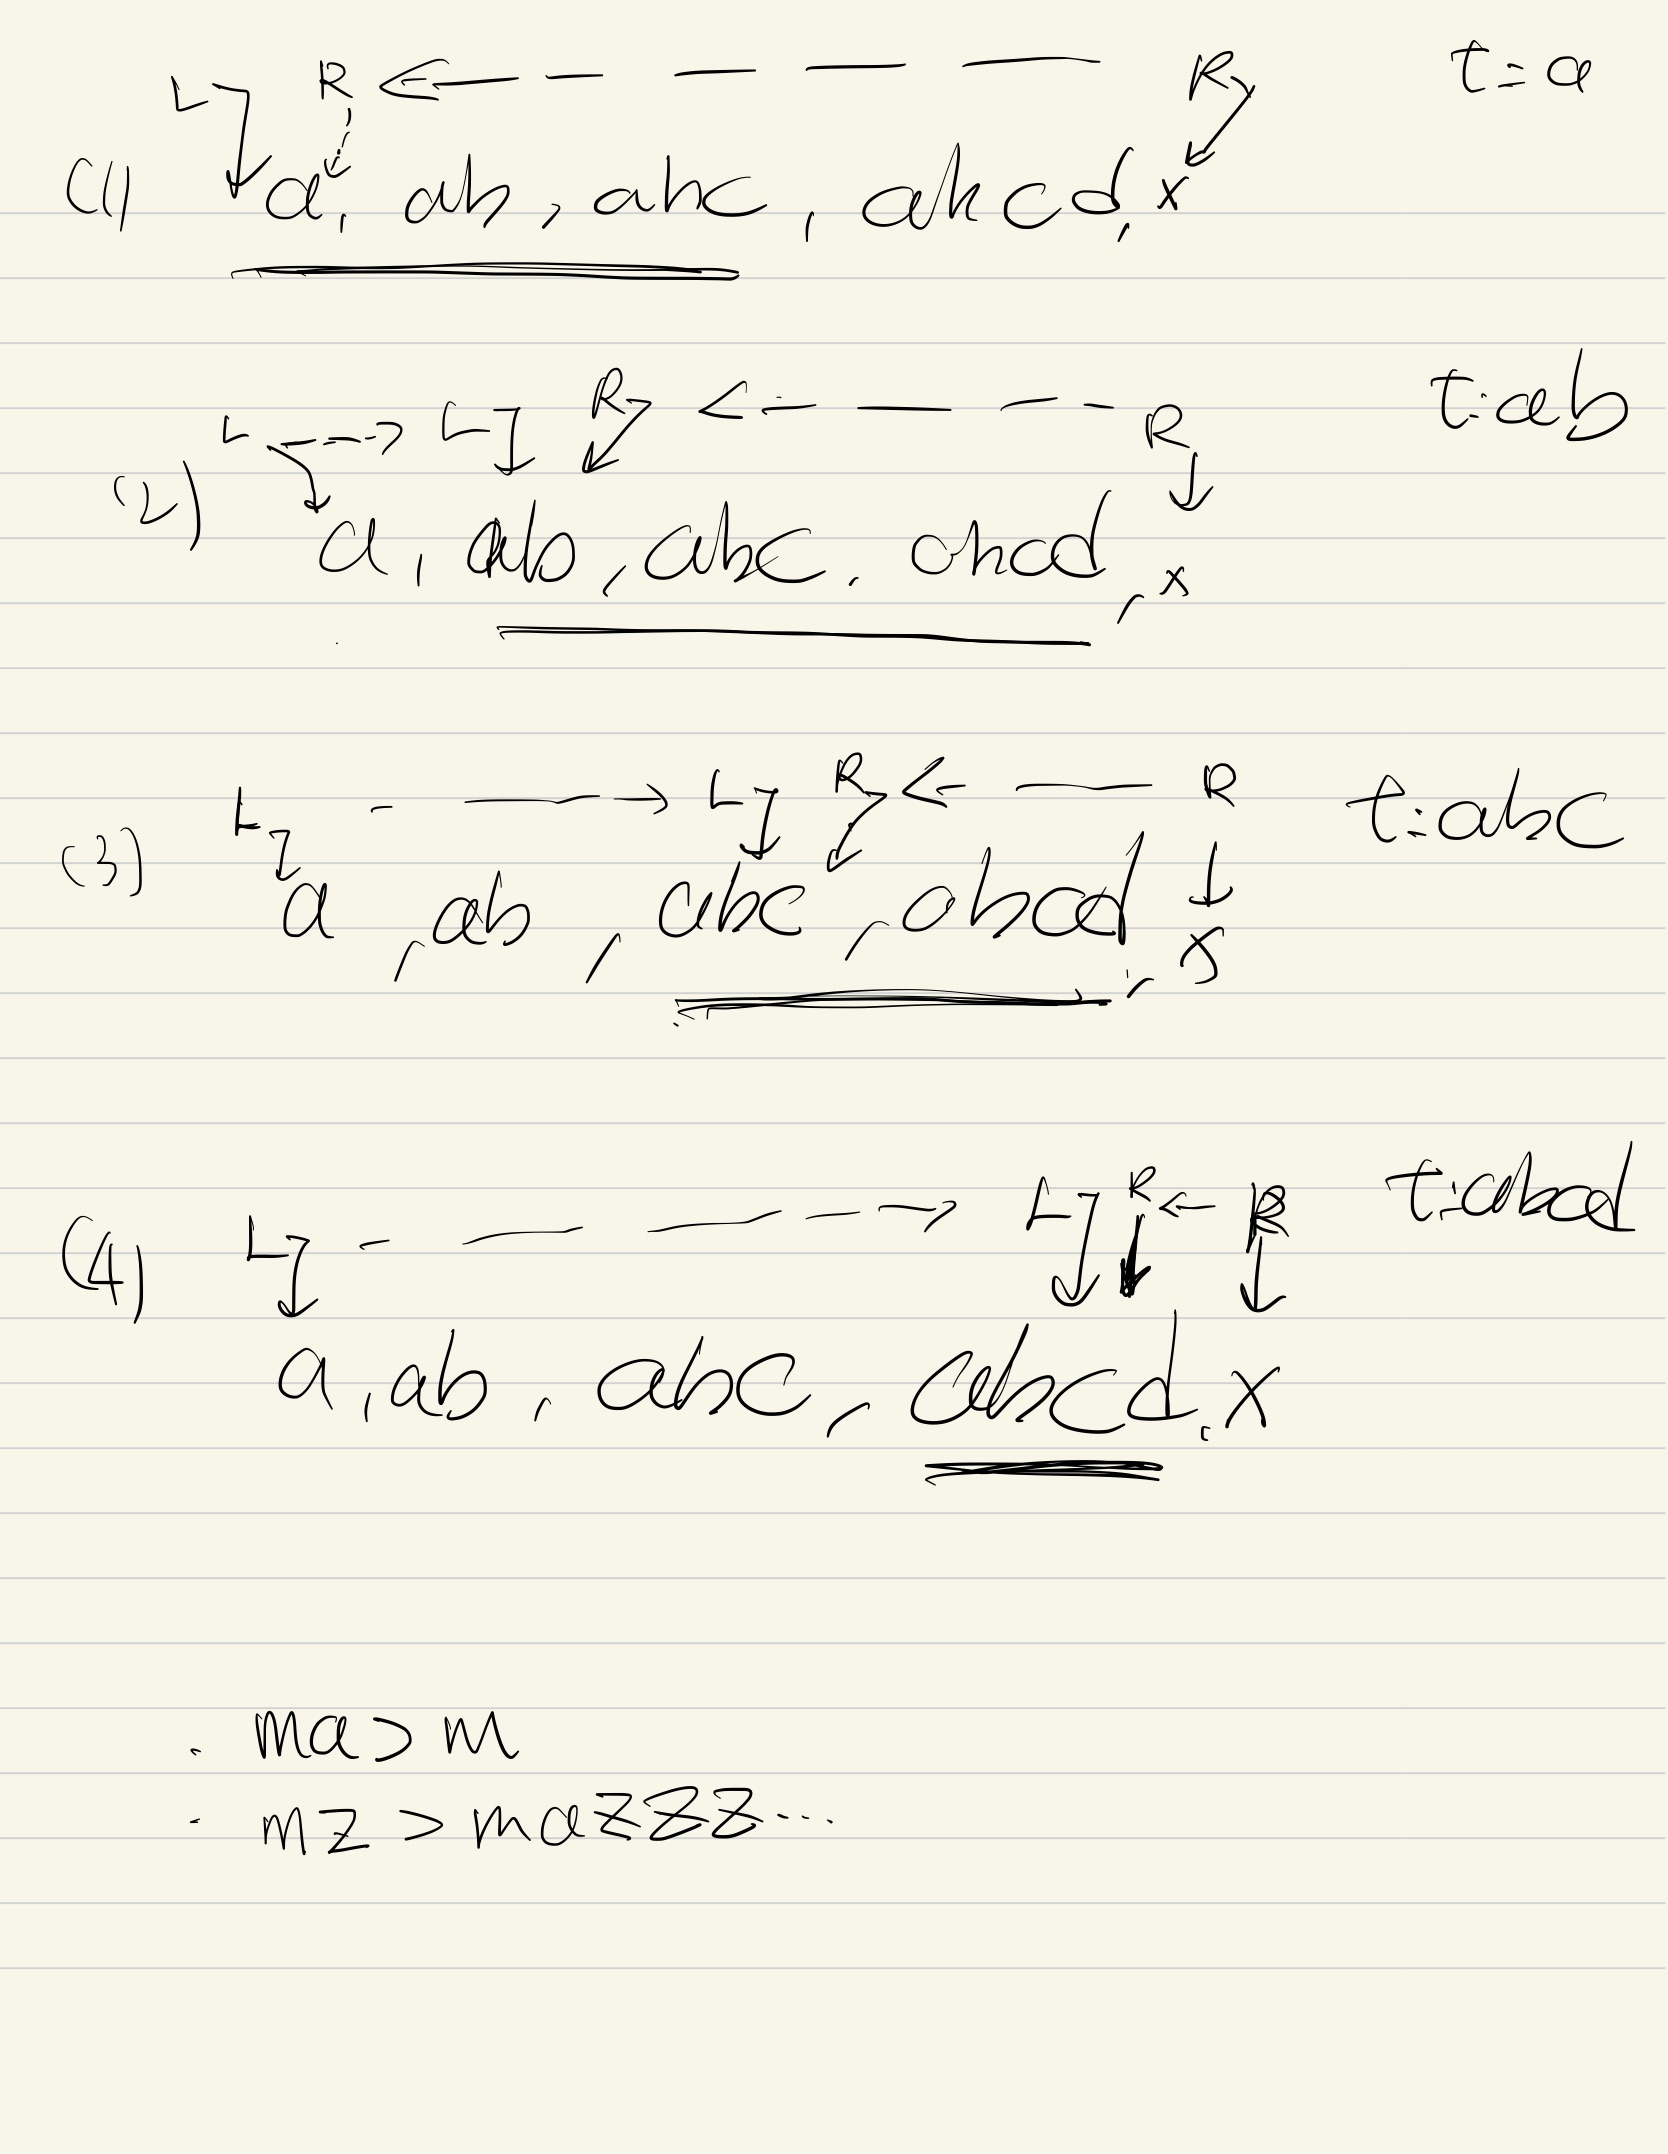 L R R t = a
(1) a, ab, abc, abcd, x
L L R R t: ab
(2) a, ab, abc, abcd, x
L L R R t: abc
(3) a, ab, abc, abcd, x
L L R R t: abcd
(4) a, ab, abc, abcd, x
. ma > m
. mz > mazzz...